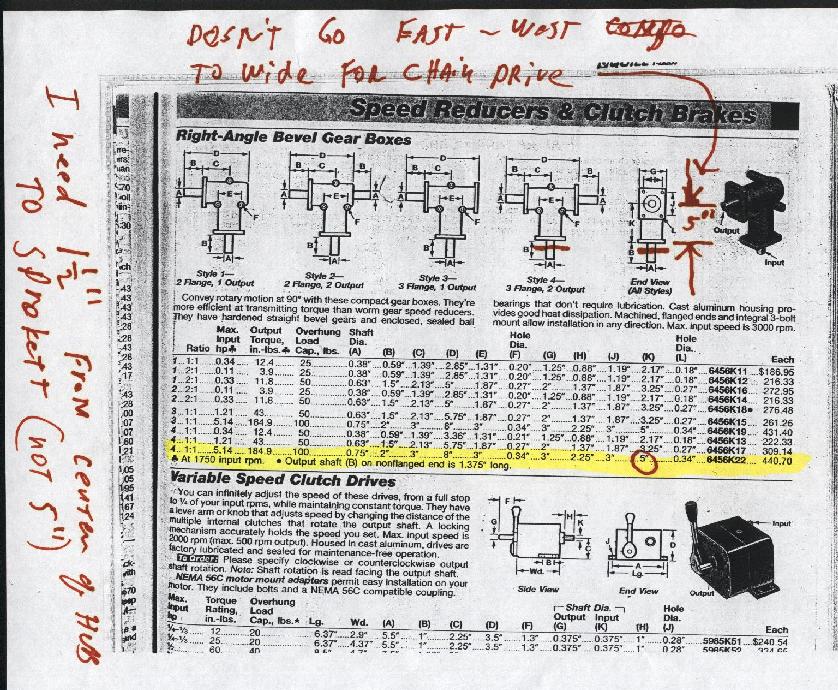 DOESN'T GO EAST ~ WEST
TO WIDE FOR CHAIN DRIVE
I need 1 1/2" FROM CENTER OF HUB
TO SPROKETT (NOT 5")
Speed Reducers & Clutch Brakes
Right-Angle Bevel Gear Boxes
5"
Output
Input
Style 1—
2 Flange, 1 Output
Style 2—
2 Flange, 2 Output
Style 3—
3 Flange, 1 Output
Style 4—
3 Flange, 2 Output
End View
(All Styles)
Convey rotary motion at 90° with these compact gear boxes. They're
more efficient at transmitting torque than worm gear speed reducers.
They have hardened straight bevel gears and enclosed, sealed ball
bearings that don't require lubrication. Cast aluminum housing pro-
vides good heat dissipation. Machined, flanged ends and integral 3-bolt
mount allow installation in any direction. Max. input speed is 3000 rpm.
Max. Output Overhung Shaft Hole Hole
Input Torque, Load Dia. Dia. Dia.
Ratio hp♣ in.-lbs.♣ Cap., lbs. (A) (B) (C) (D) (E) (F) (G) (H) (J) (K) (L) Each
1...1:1...0.34 12.4 25 0.38" 0.59" 1.39" 2.85" 1.31" 0.20" 1.25" 0.88" 1.19" 2.17" 0.18" 6456K11 $186.95
1...2:1...0.11 3.9 25 0.38" 0.59" 1.39" 2.85" 1.31" 0.20" 1.25" 0.88" 1.19" 2.17" 0.18" 6456K12 216.33
1...2:1...0.33 11.8 50 0.63" 1.5" 2.13" 5" 1.87" 0.27" 2" 1.37" 1.87" 3.25" 0.27" 6456K16 272.95
2...2:1...0.11 3.9 25 0.38" 0.59" 1.39" 2.85" 1.31" 0.20" 1.25" 0.88" 1.19" 2.17" 0.18" 6456K14 216.33
2...2:1...0.33 11.8 50 0.63" 1.5" 2.13" 5" 1.87" 0.27" 2" 1.37" 1.87" 3.25" 0.27" 6456K18● 276.48
3...1:1...1.21 43 50 0.63" 1.5" 2.13" 5.75" 1.87" 0.27" 2" 1.37" 1.87" 3.25" 0.27" 6456K15 261.26
3...1:1...5.14 184.9 100 0.75" 2" 3" 8" 3" 0.34" 3" 2.25" 3" 5" 0.34" 6456K19 431.40
4...1:1...0.34 12.4 50 0.38" 0.59" 1.39" 3.36" 1.31" 0.21" 1.25" 0.88" 1.19" 2.17" 0.18" 6456K13 222.33
4...1:1...1.21 43 50 0.63" 1.5" 2.13" 5.75" 1.87" 0.27" 2" 1.37" 1.87" 3.25" 0.27" 6456K17 309.14
4...1:1...5.14 184.9 100 0.75" 2" 3" 8" 3" 0.34" 3" 2.25" 3" 5" 0.34" 6456K22 440.70
♣ At 1750 input rpm. ● Output shaft (B) on nonflanged end is 1.375" long.
Variable Speed Clutch Drives
You can infinitely adjust the speed of these drives, from a full stop
to ¼ of your input rpms, while maintaining constant torque. They have
a lever arm or knob that adjusts speed by changing the distance of the
multiple internal clutches that rotate the output shaft. A locking
mechanism accurately holds the speed you set. Max. input speed is
2000 rpm (max. 500 rpm output). Housed in cast aluminum, drives are
factory lubricated and sealed for maintenance-free operation.
To Order: Please specify clockwise or counterclockwise output
shaft rotation. Note: Shaft rotation is read facing the output shaft.
NEMA 56C motor mount adapters permit easy installation on your
motor. They include bolts and a NEMA 56C compatible coupling.
Side View
End View
Input
Output
Max. Torque Overhung Shaft Dia. Hole
Input Rating, Load Output Input Dia.
hp in.-lbs. Cap., lbs.* Lg. Wd. (A) (B) (C) (D) (F) (G) (K) (H) (J) Each
12 20 6.37" 2.9" 5.5" 1" 2.25" 3.5" 1.3" 0.375" 0.375" 1" 0.28" 5985K51 $240.54
25 20 6.37" 4.37" 5.5" 1" 2.25" 3.5" 1.3" 0.375" 0.375" 1" 0.28"
60 40